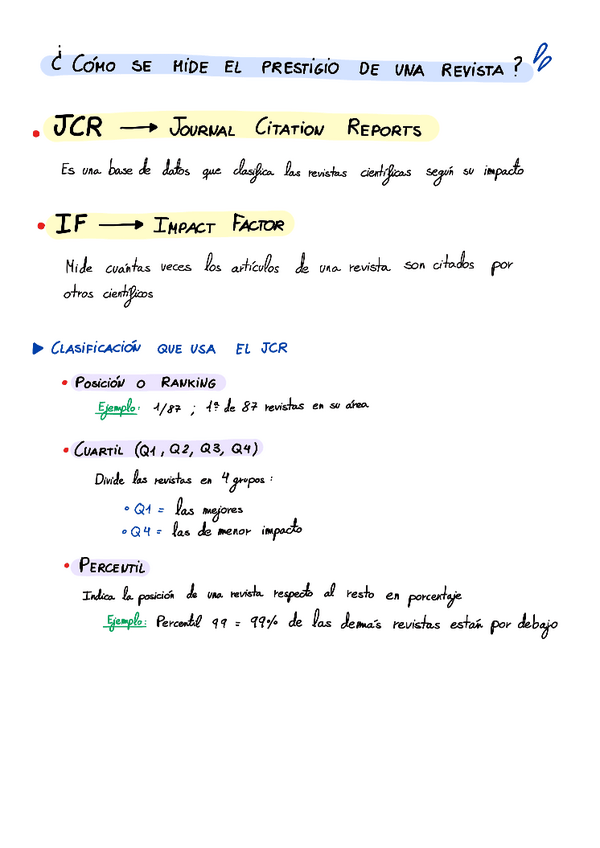 ¿Cómo se mide el prestigio de una revista?
• JCR → Journal Citation Reports
Es una base de datos que clasifica las revistas científicas según su impacto
• IF → Impact Factor
Mide cuántas veces los artículos de una revista son citados por
otros científicos
▶ Clasificación que usa el JCR
• Posición o Ranking
Ejemplo: 1/87 ; 1º de 87 revistas en su área
• Cuartil (Q1, Q2, Q3, Q4)
Divide las revistas en 4 grupos:
• Q1 = las mejores
• Q4 = las de menor impacto
• Percentil
Indica la posición de una revista respecto al resto en porcentaje
Ejemplo: Percentil 99 = 99% de las demás revistas están por debajo